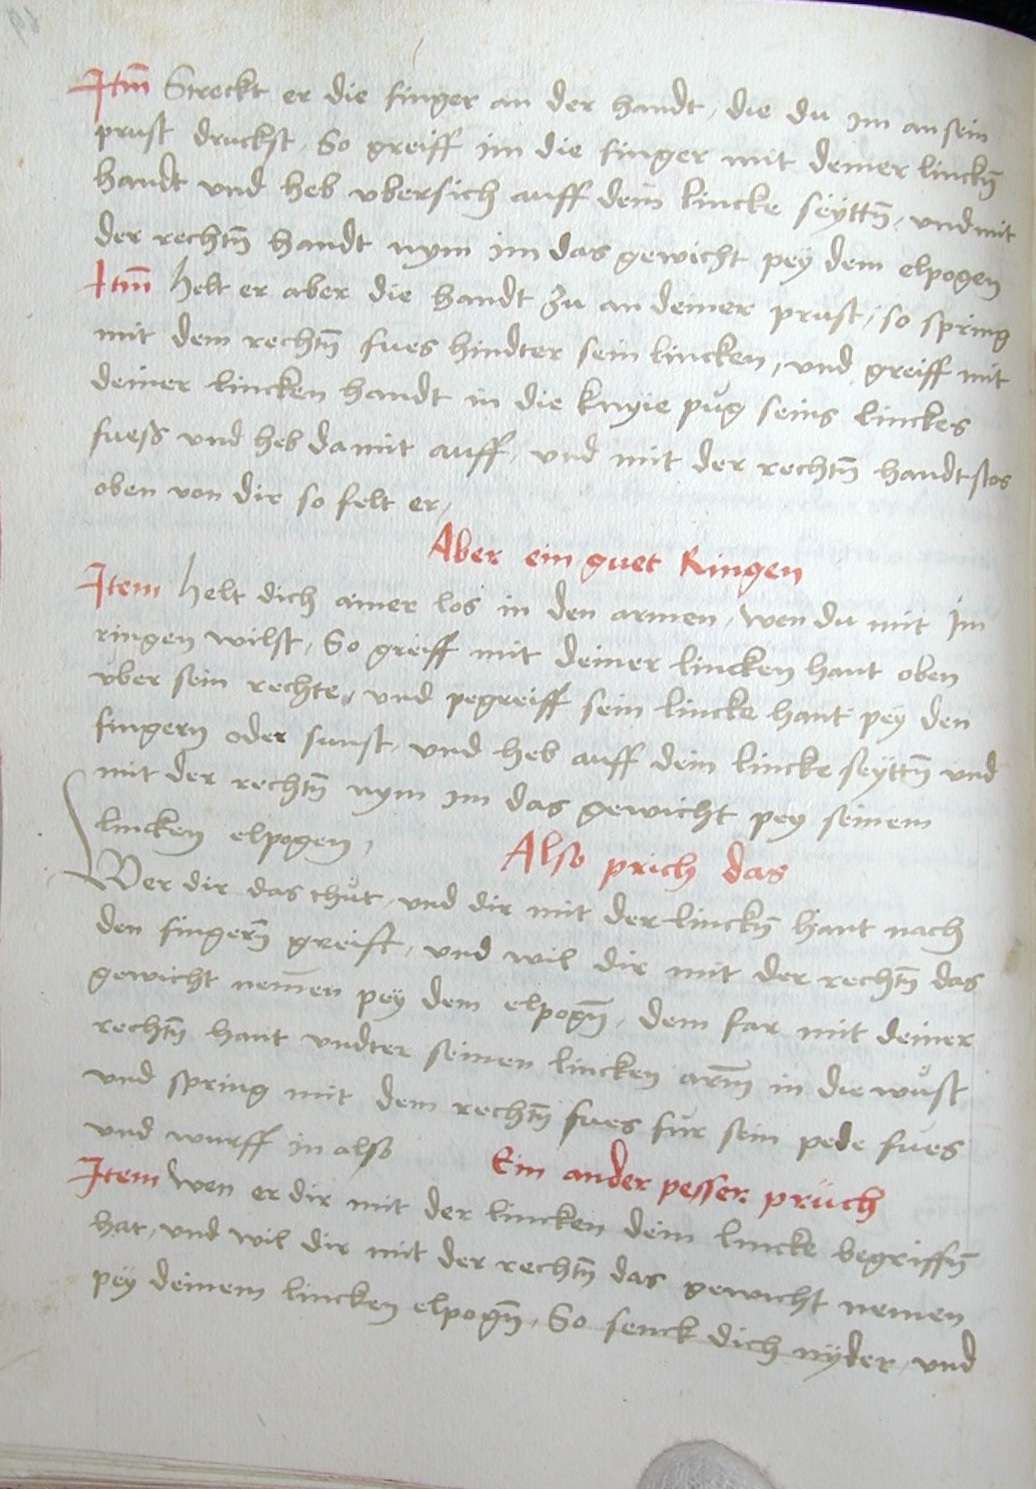 Itm̄ Streckt er die finger an der handt, die du im an sein
prust druckst, So greiff im die finger mit deiner linckn̄
handt vnd heb vbersich auff dein̄ lincke seyttn̄, vnd mit
der rechtn̄ handt nym im das gewicht pey dem elpogen
Itm̄ helt er aber die handt zu an deiner prust, so spring
mit dem rechtn̄ fues hindter sein lincken, vnd greiff mit
deiner lincken handt in die knyie pug seins linckes
fuess vnd heb damit auff, vnd mit der rechtn̄ handt stos
oben von dir so felt er,
Aber ein guet Ringen
Item helt dich ainer los in den armen, wen du mit im
ringen wilst, So greiff mit deiner lincken hant oben
vber sein rechte, vnd pegreiff sein lincke hant pey den
fingern oder sunst, vnd heb auff dein lincke seyttn̄ vnd
mit der rechtn̄ nym im das gewicht pey seinem
lincken elpogen,
Also prich das
Wer dir das thůt, vnd dir mit der linckn̄ hant nach
den fingern̄ greift, vnd wil dir mit der rechtn̄ das
gewicht nemen̄ pey dem elpogn̄, dem far mit deiner
rechtn̄ hant vndter seinen lincken arm̄ in die wůst
vnd spring mit dem rechtn̄ fues fur sein pede fues
vnd wurff in also
Ein ander pesser prüch
Item wen er dir mit der lincken dein lincke begriffn̄
hat, vnd wil dir mit der rechtn̄ das gewicht nemen
pey deinem lincken elpogn̄, So senck dich nyder, vnd